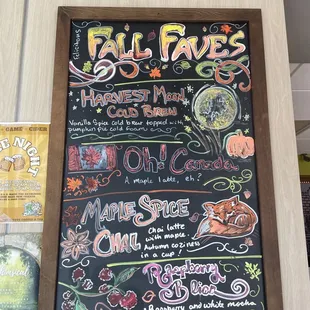 felicitous
FALL FAVES
HARVEST MOON
COLD BREW
Vanilla Spice cold brew topped with
pumpkin pie cold foam
Oh! Canada
A maple latte, eh?
MAPLE SPICE
CHAI
Chai latte
with maple.
Autumn coziness
in a cup!
Raspberry
Bliss
Raspberry and white mocha
GAME
NIGHT